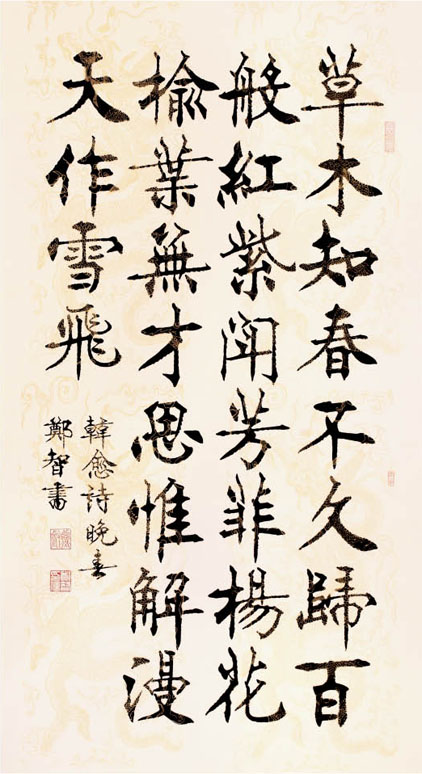 草木知春不久歸百
般紅紫鬥芳菲楊花
榆葉無才思惟解漫
天作雪飛
韓愈詩晚春
鄭智書